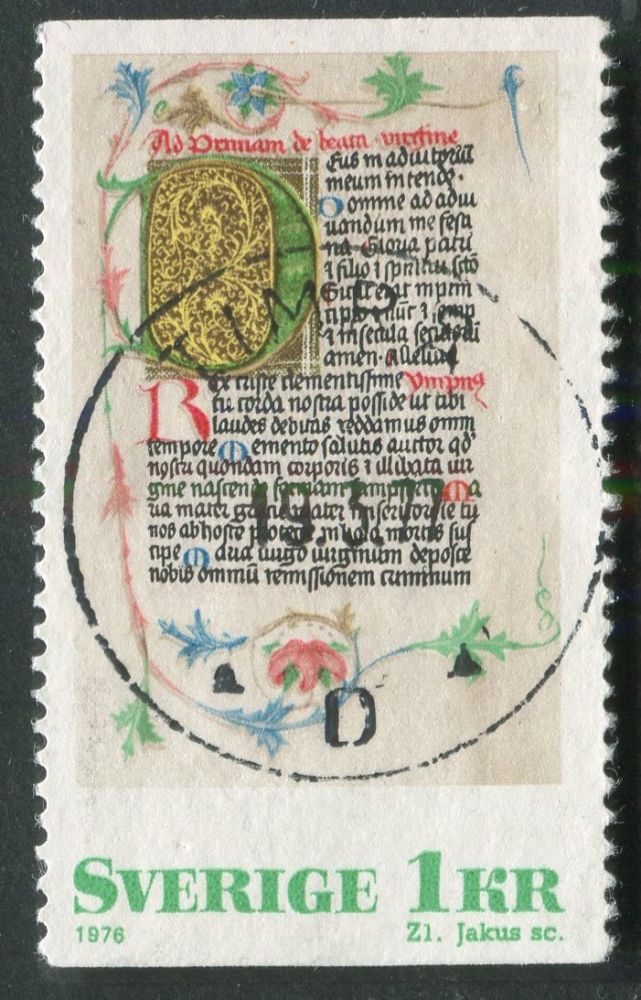 Ad Primam de beata virgine
Eus in adiutoriũ
meum intende.
Domine ad adiu
uandum me festi
na Gloria patri
⁊ filio ⁊ spiritui scto
Sicut erat in prin
cipio nunc ⁊ semp
⁊ in secula seculoru
amen. alleluia
Rex criste clementissime Ympnus
tu corda nostra posside ut tibi
laudes debitas reddamus omni
tempore Memento salutis auctor qd'
nostri quondam corporis ⁊ illibata uir
gine nascendo formam sumpseris Ma
ria mater gracie mater misericordie tu
nos ab hoste protege in hora mortis sus
cipe Maria uirgo uirginum deposce
nobis omniũ remissionem criminum
19.3.77
D
SVERIGE 1 KR
1976 Zl. Jakus sc.